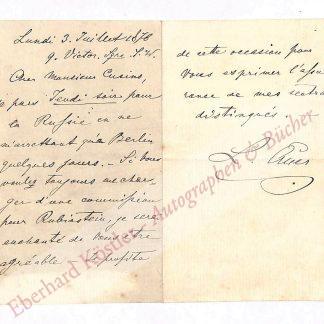 Lundi 3. Juillet 1876
9. Victor. Sqre. S.W.
Cher Monsieur Cusins,
je pars Jeudi soir pour
la Russie en ne
m'arrettant qu'à Berlin
quelques jours. – Si vous
voulez toujours me char-
ger d'une commission
pour Rubinstein, je serai
enchanté de vous être
agréable – et profite
de cette occasion pour
vous exprimer l'assu-
rance de mes sentim.
distingués
L. Auer
Eberhard Köstler Autographen & Bücher